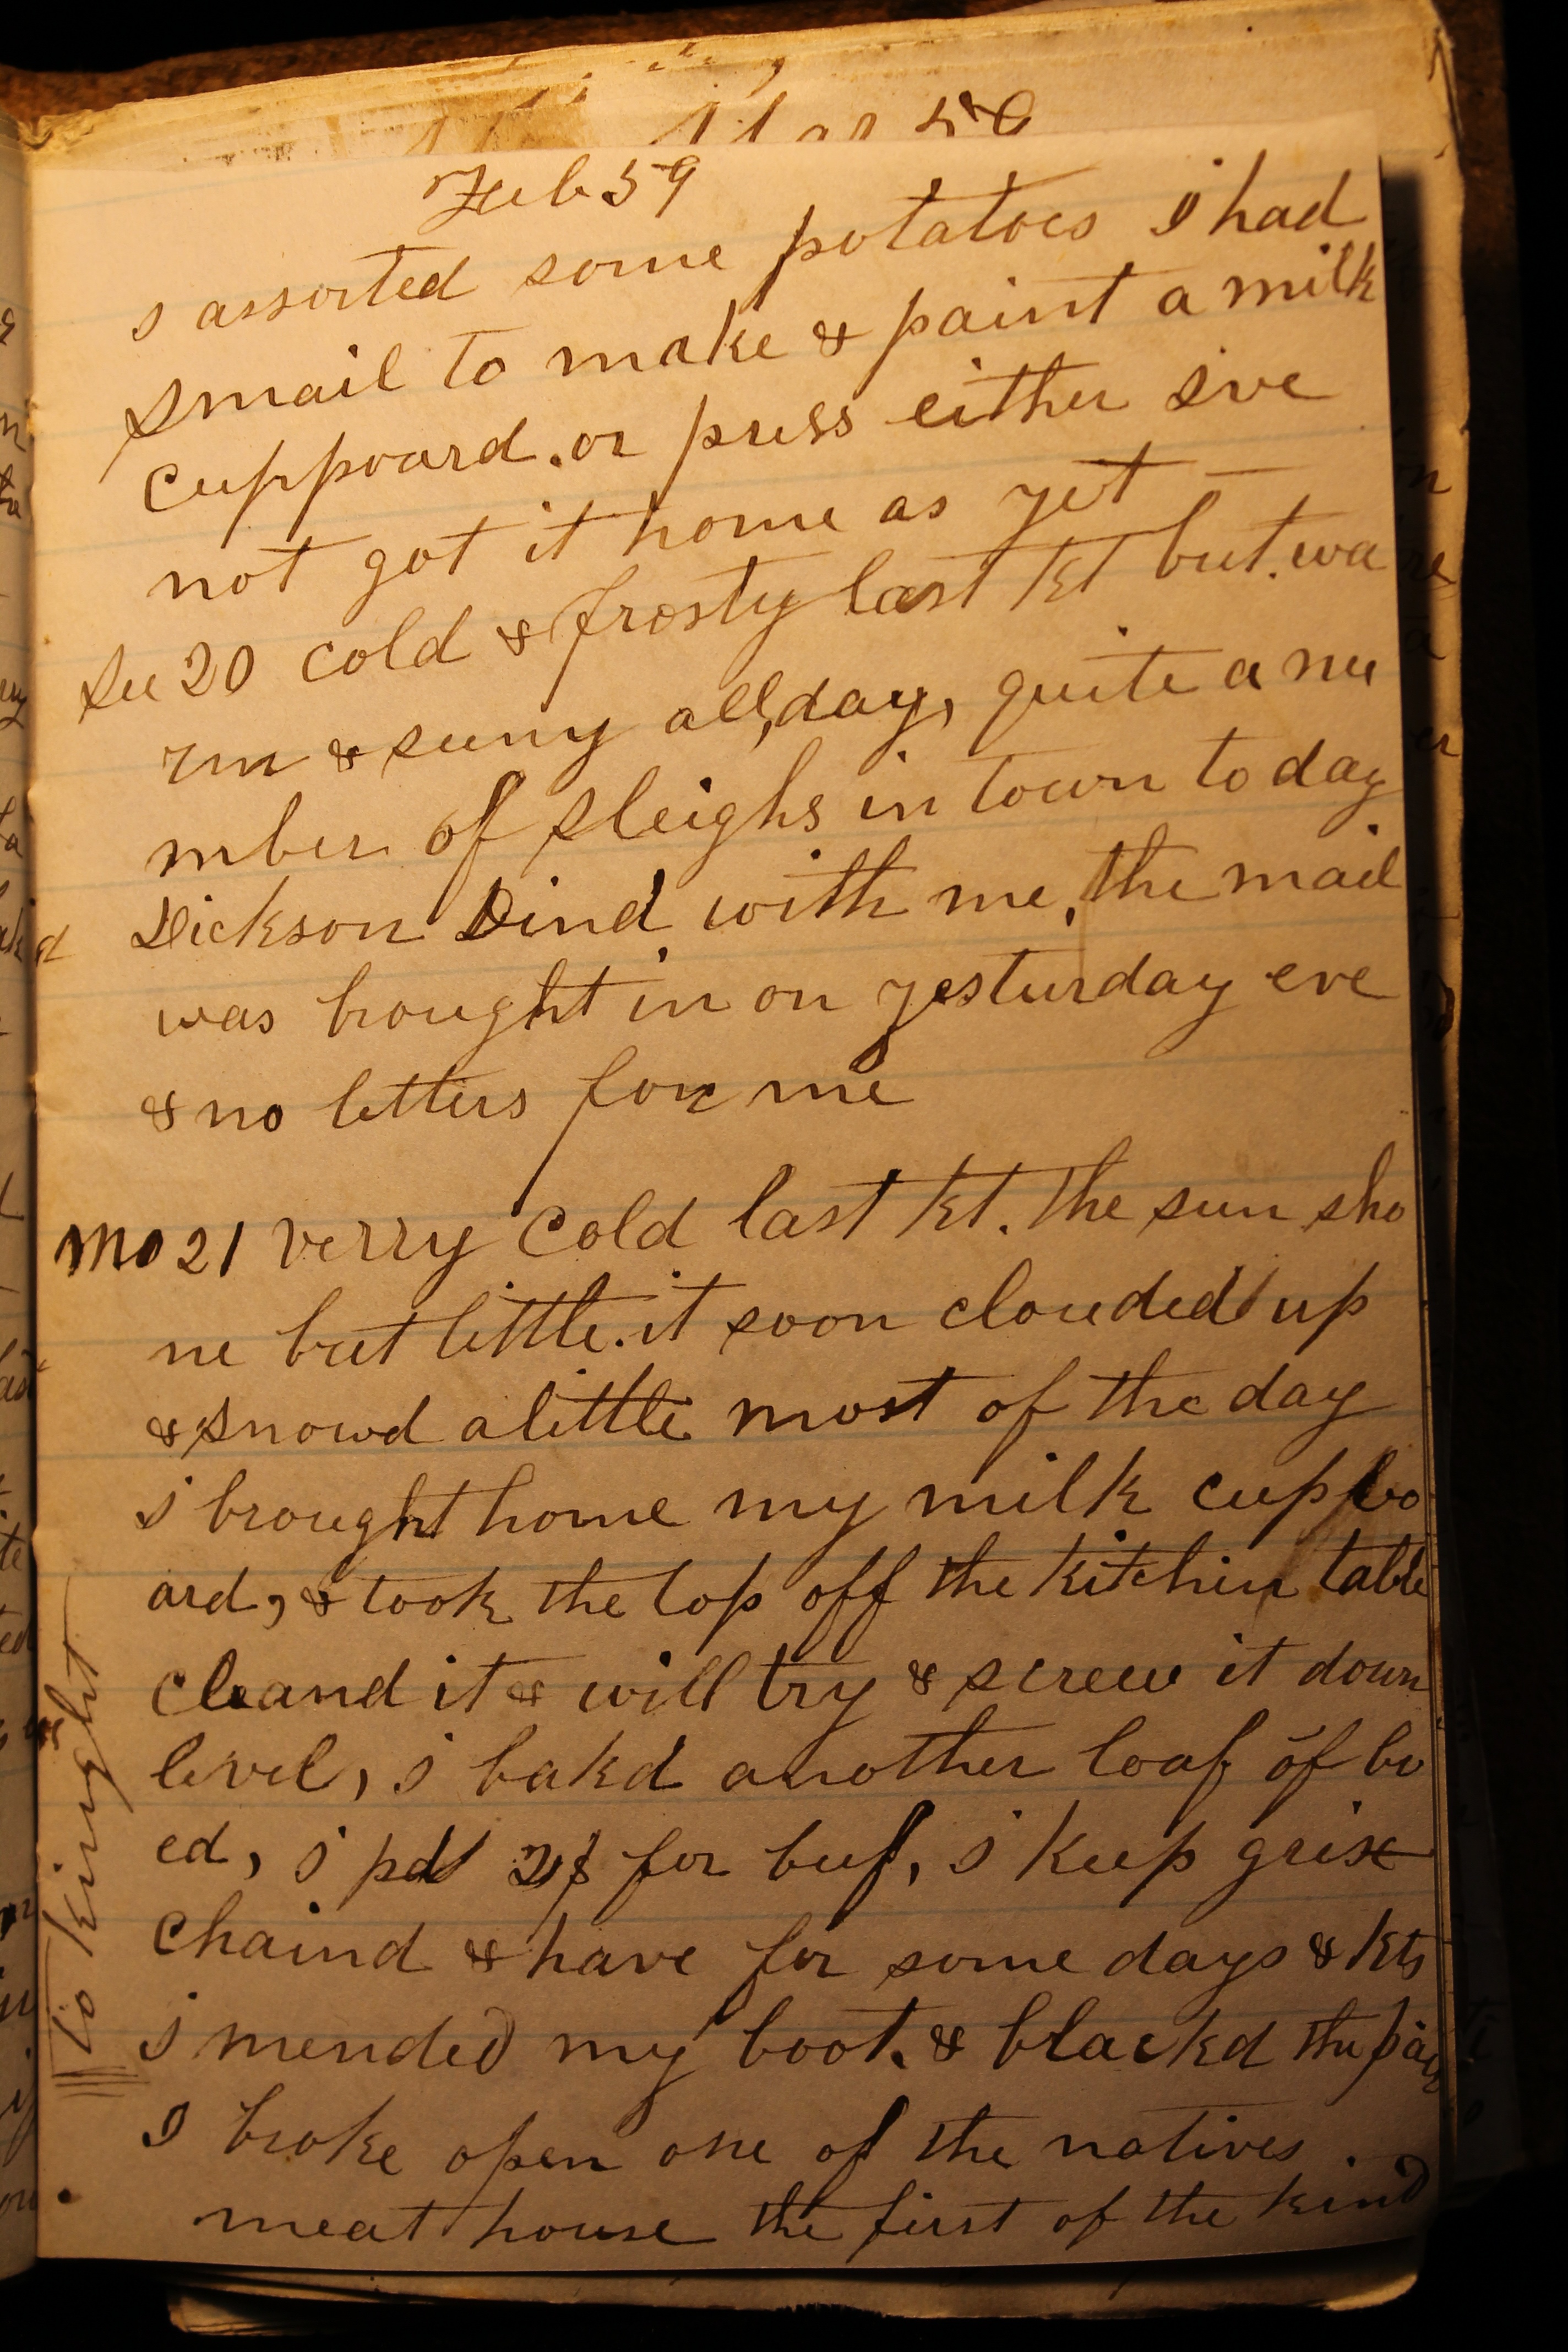 Feb 59
I assorted some potatoes I had
Smail to make & paint a milk
cuppoard. or press either Ive
not got it home as yet —
Su 20 cold & frosty last kt but. wa
rm & suny all, day, quite a nu
mber of sleighs in town to day
Dickson Dind with me, the mail
was brought in on yesturday eve
& no letters for me
Mo 21 verry cold last kt. the sun sho
ne but little. it soon clouded up
& snowd a little most of the day
i brought home my milk cupbo
ard, & took the top off the kitchin table
cleand it & will try & screw it down
level, i bakd another loaf of
ed, i pd for beef, i keep
chaind & have for some days & kts
i mended my boot. & blackd the
I broke open one of the natives
meat house the first of the kind
to kinght